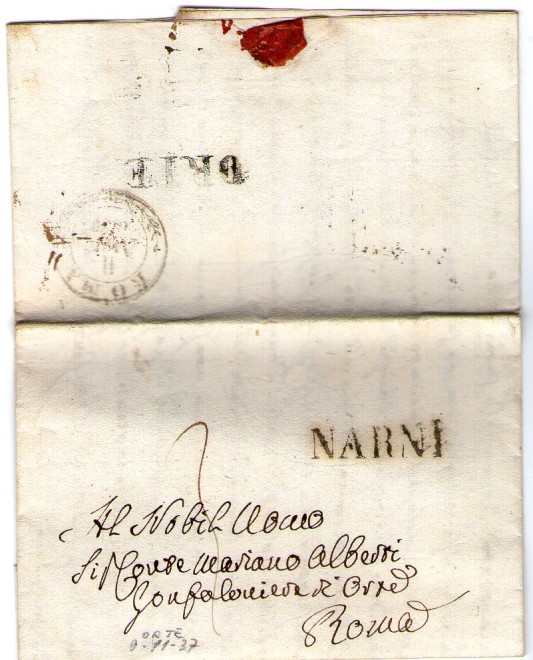 ORTE
ROMA
NARNI
Al Nobil Uomo
Sig Conte Mariano Alberti
Gonfaloniere d'Orte
Roma
ORTE
9-11-37